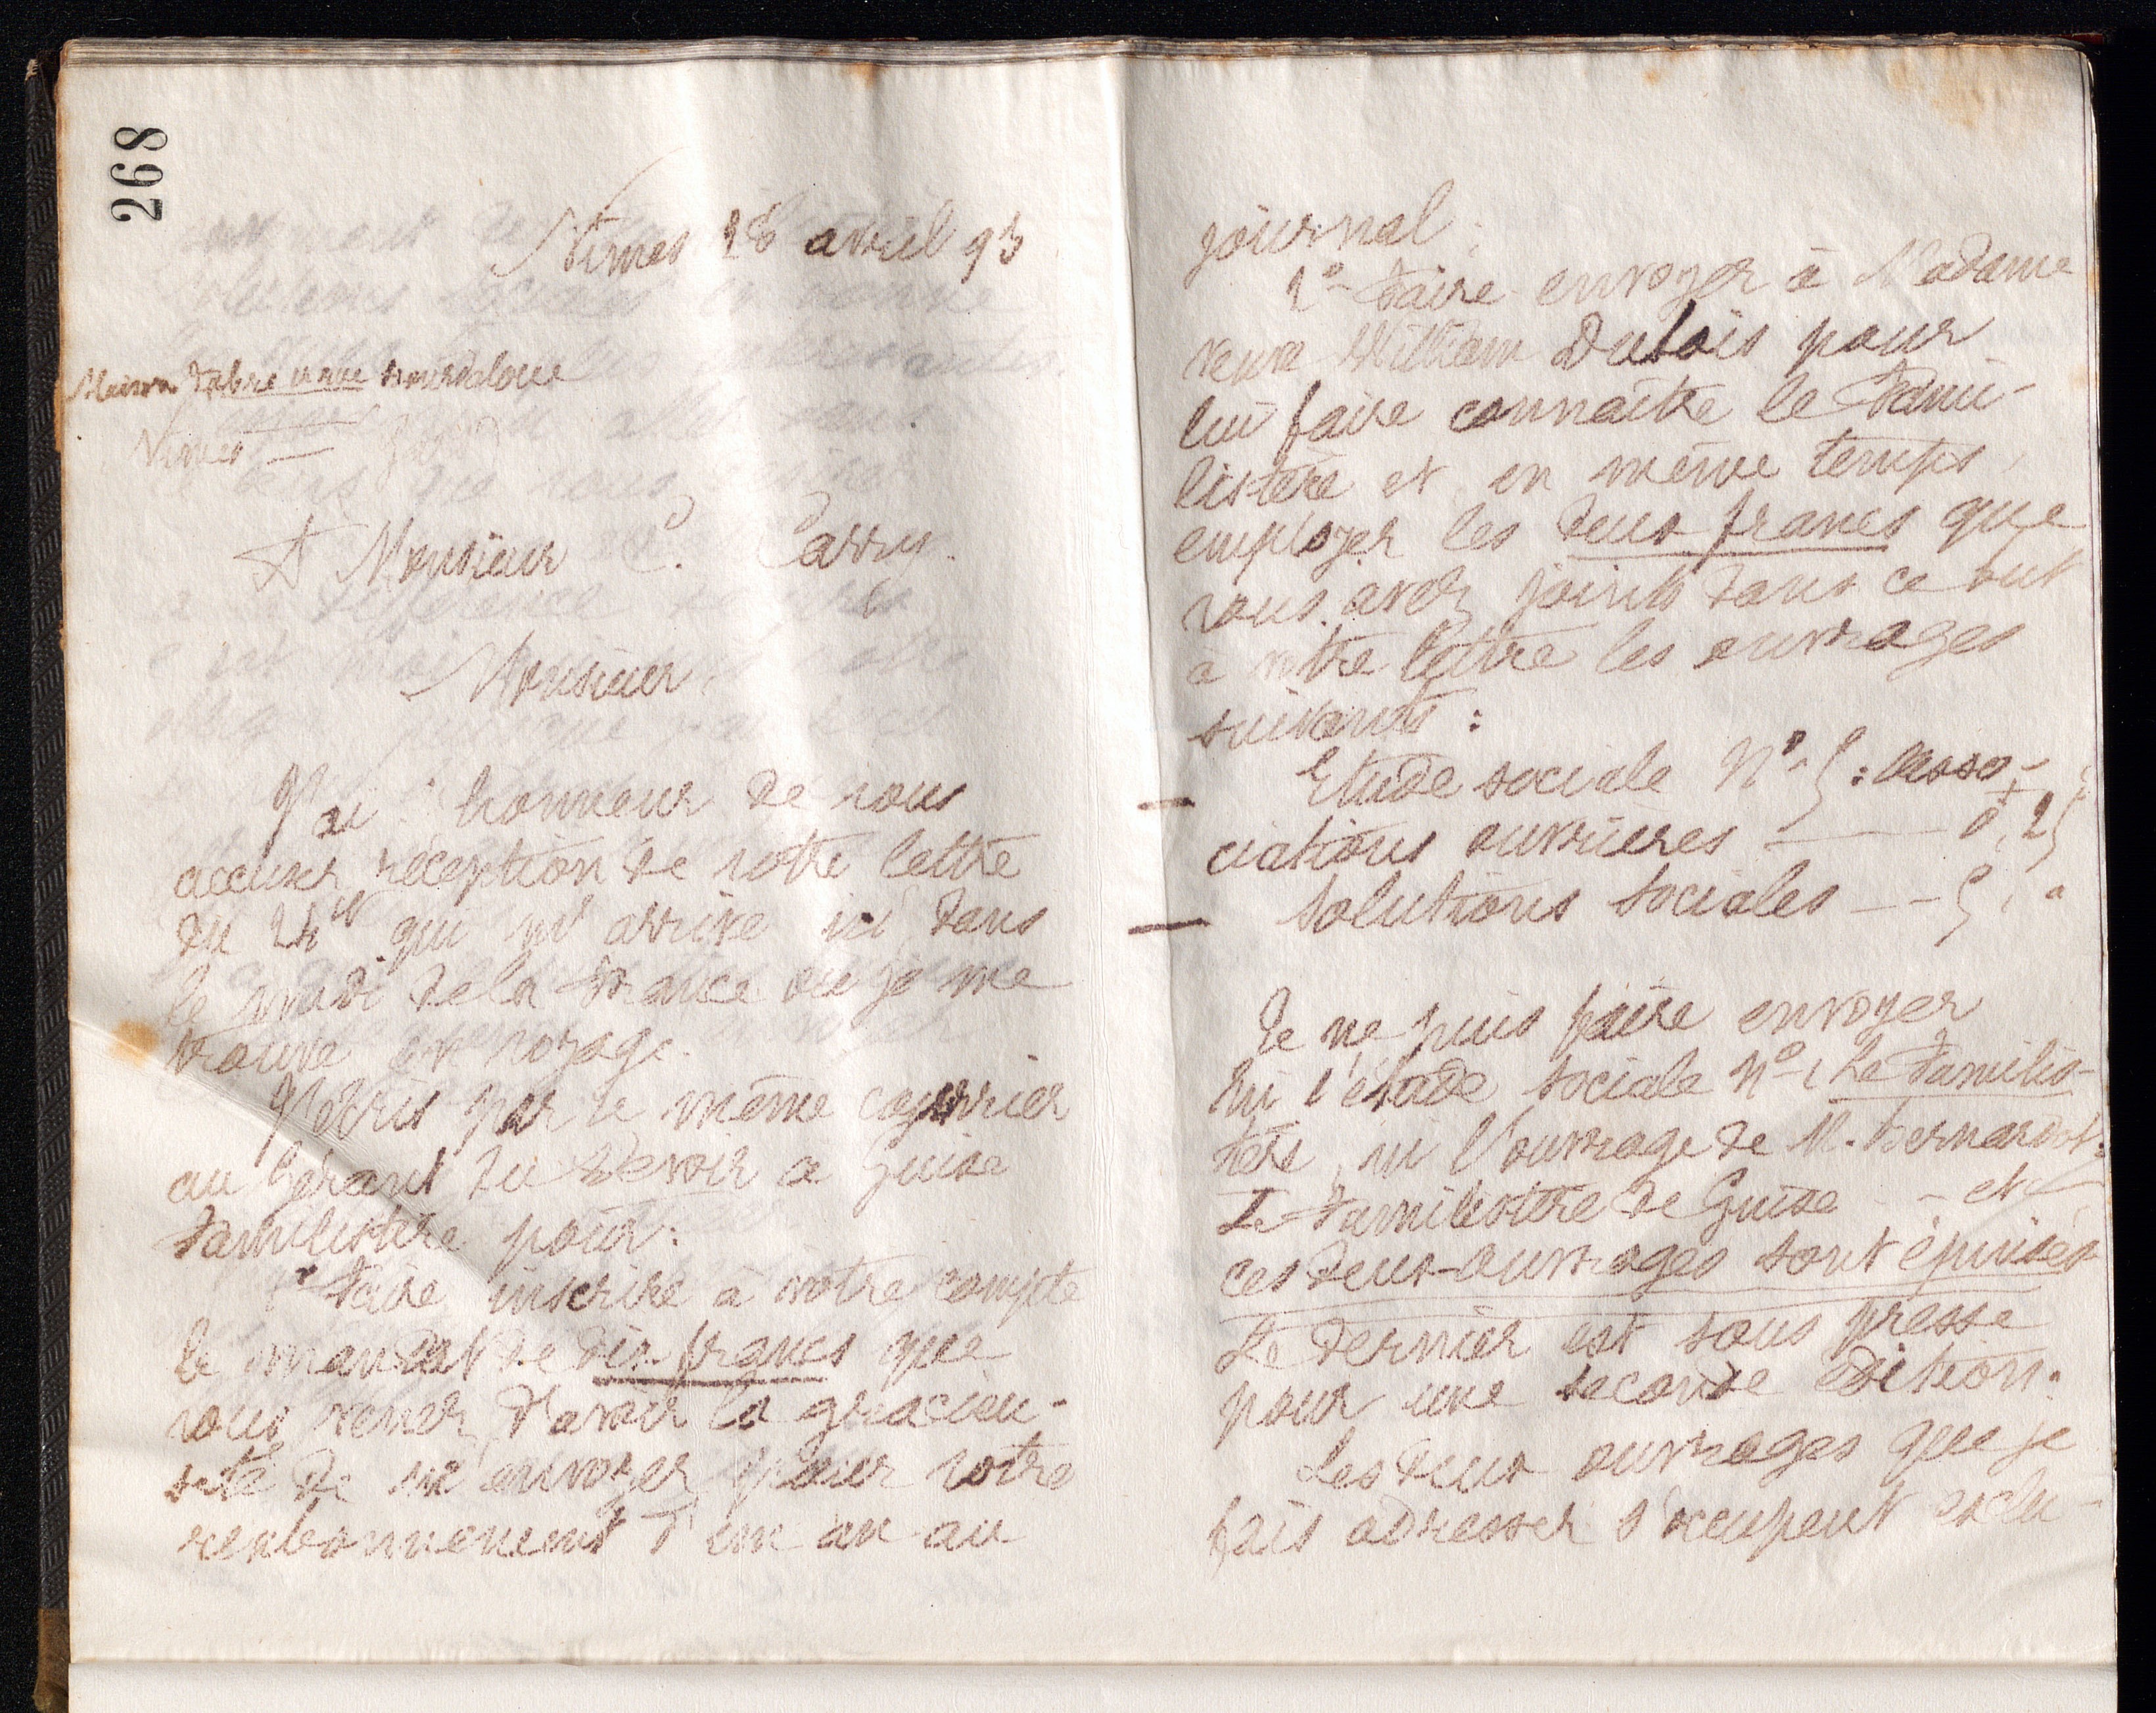 268
Nimes 28 avril 93
Maison Fabre rue Bourdaloue
Nimes — Gard
A Monsieur C. Parry
Monsieur,
J'ai l'honneur de vous
accuser réception de votre lettre
du 24 ct qui m'arrive ici, dans
le midi de la France où je me
trouve en voyage.
J'écris par le même courrier
au Gérant du Devoir à Guise
Familistère pour:
1° Faire inscrire à votre compte
le mandat de dix francs que
vous venez d'avoir la gracieu-
seté de m'envoyer pour votre
réabonnement d'un an au
journal;
2° Faire envoyer à Madame
veuve William Dubois pour
lui faire connaître le Fami-
listère et en même temps
employer les deux francs que
vous avez joints dans ce but
à votre lettre les ouvrages
suivants:
Etude sociale N° 5: Asso-
ciations ouvrières — 0,25
Solutions sociales -- 5, "
Je ne puis faire envoyer
ni l'étude sociale N° 1 Le Familis-
tère, ni l'ouvrage de M. Bernardot:
Le Familistère de Guise - et -
ces deux ouvrages sont épuisés
Le dernier est sous presse
pour une seconde édition.
Les deux ouvrages que je
fais adresser s'occupent exclu-